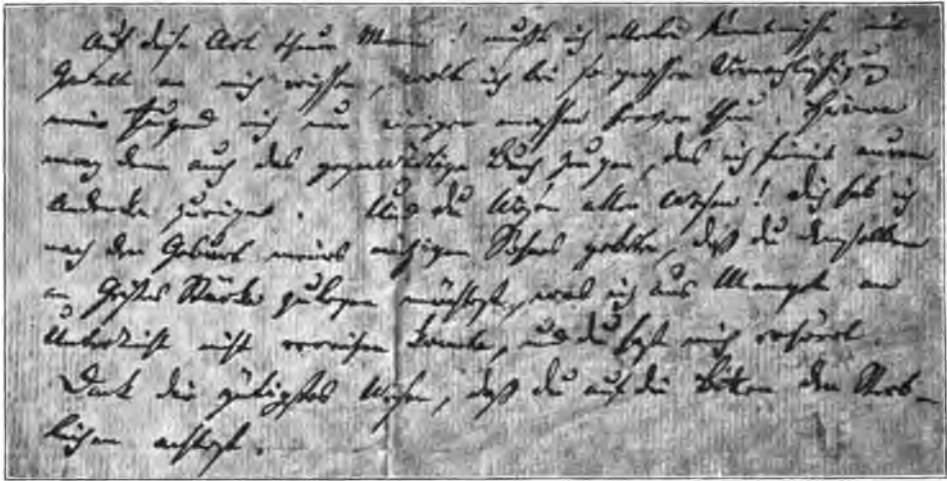 Auf diese Art theurer Mann! mußte ich allerlei Kenntnisse mit
Gewalt an mich reissen, wollt ich bei so grosser Vernachläßigung
meiner Jugend mich nur einiger massen hervor thun.
mag denn auch das gegenwärtige Buch zeugen, das ich hiemit eurem
Andenken zueigne. Und du Wesen aller Wesen! dich hab ich
nach der Geburt meines einzigen Sohnes gebeten, daß du demselben
an Geistes Stärke zulegen möchtest, was ich aus Mangel an
Unterricht nicht erreichen konnte, und du hast mich erhört.
Dank dir gütigstes Wesen, daß du auf die Bitten der Sterb-
lichen achtest.